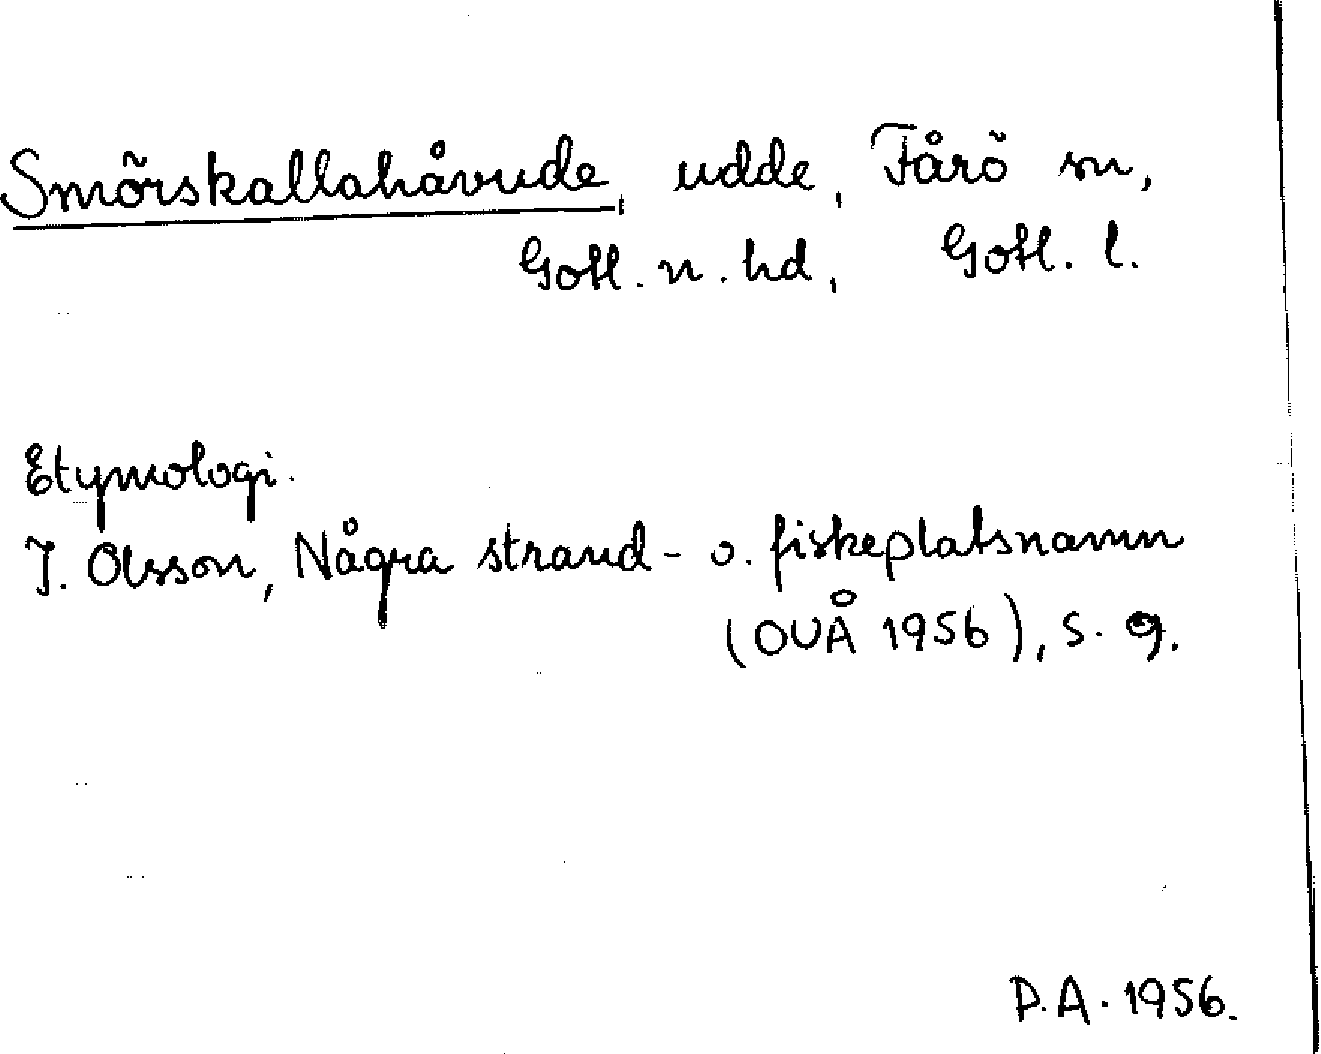 Smörskallahåvude, udde, Fårö sn,
Gotl. n. hd, Gotl. l.
Etymologi.
I. Olsson, Några strand- o. fiskeplatsnamn
(OUÅ 1956), s. 9.
P.A. 1956.